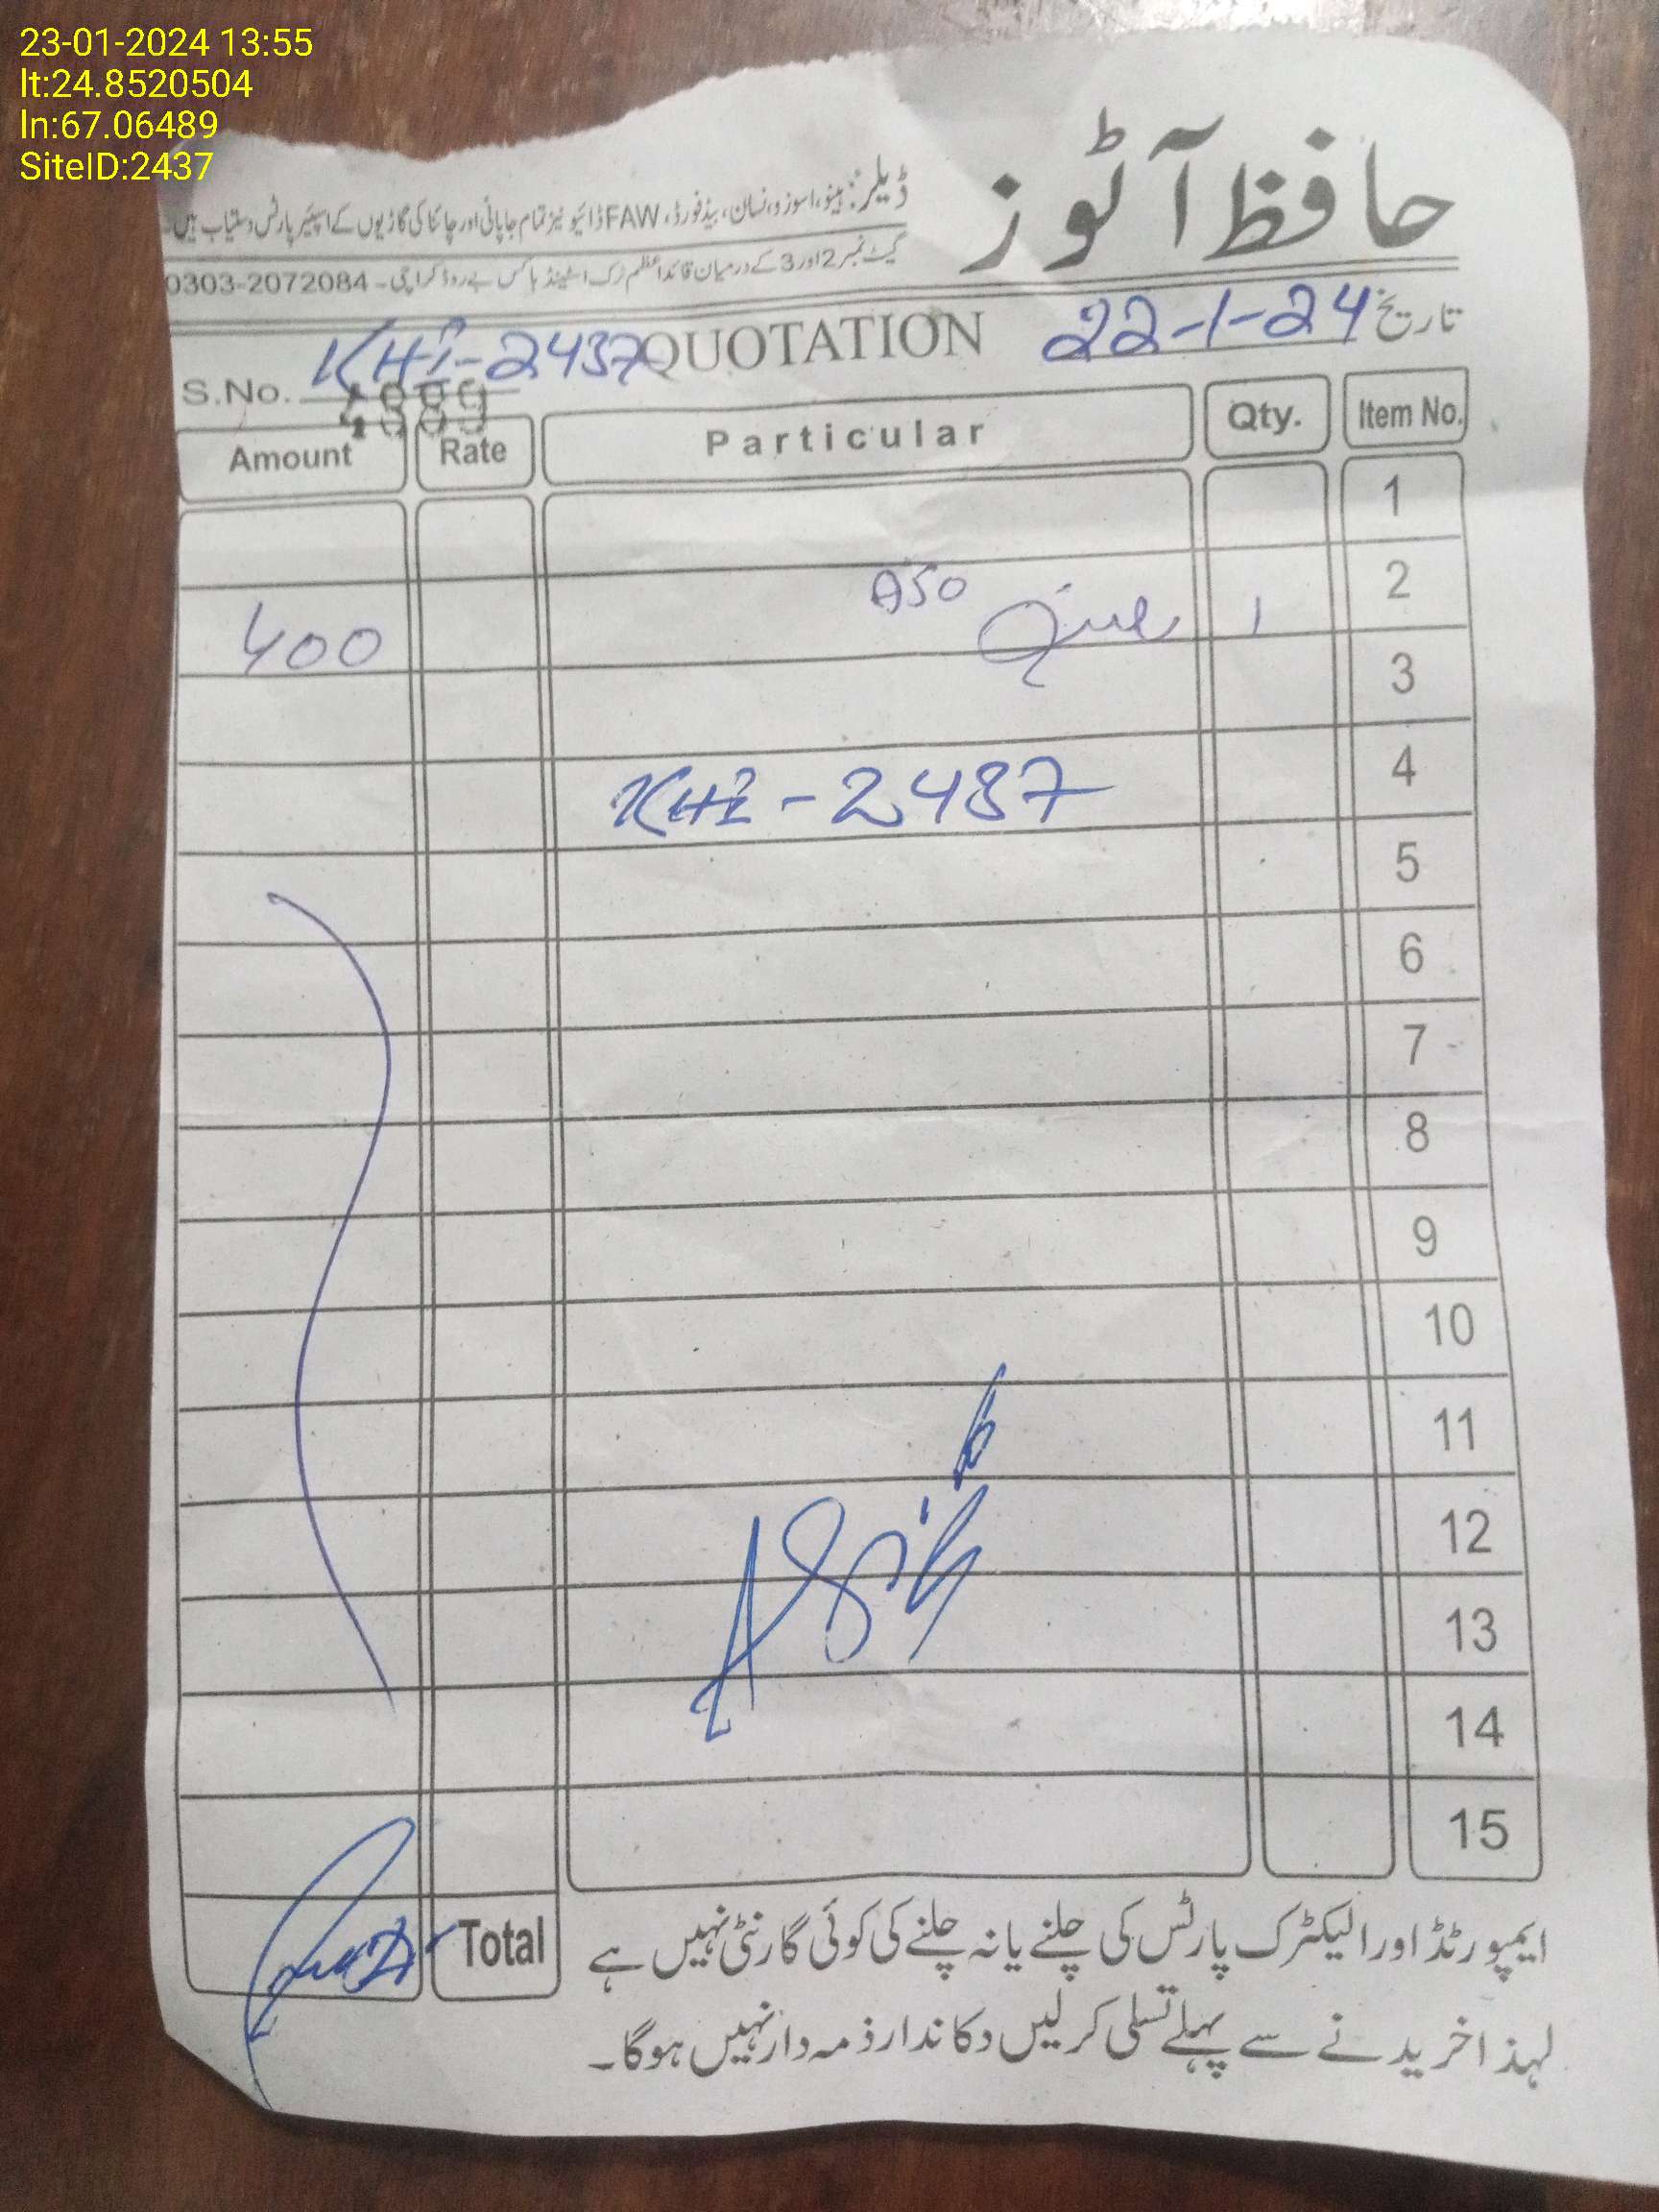 23-01-2024 13:55
lt:24.8520504
ln:67.06489
SiteID:2437
حافظ آٹوز
ڈیلر: ہینو، اسوزو، نسان، بیڈفورڈ، FAW ڈائیو نیز تمام جاپانی اور چائنا کی گاڑیوں کے اسپئیر پارٹس دستیاب ہیں۔
گیٹ نمبر 2 اور 3 کے درمیان قائد اعظم ٹرک اسٹینڈ ہاکس بے روڈ کراچی - 0303-2072084
تاریخ 22-1-24
QUOTATION
KHI-2437
S.No. 4989
Amount Rate Particular Qty. Item No.
1
2
400 A50 1
3
KHI-2437 4
5
6
7
8
9
10
11
12
13
14
15
Total
ایمپورٹڈ اور الیکٹرک پارٹس کی چلنے یا نہ چلنے کی کوئی گارنٹی نہیں ہے
لہذا خریدنے سے پہلے تسلی کر لیں دکاندار ذمہ دار نہیں ہوگا۔